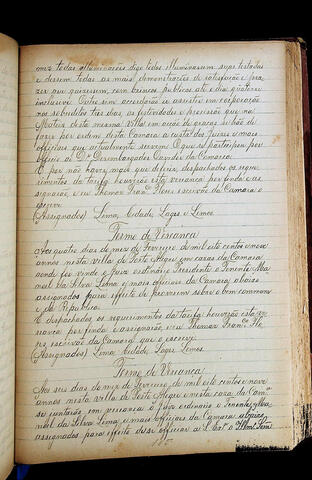 mez todas alluminações digo todos illuminarem suas testadas
e dessem todas as mais demonstrações de satisfação e pra
zer que quizessem, com brincos publicos até o dia quatorze
inclusive. Outro sim accordarão se assistir em corporação
nos sobreditos tres dias, as festividades e procissão que na
Matriz desta mesma Villa em acção de graças se hão de
fazer por ordem desta Camara a custa dos Juizes e mais
officiaes que actualmente servem. O que se participou por
officio ao Dr Desembargador Ouvidor da Comarca.
E por não haver mais que deferir, despachados os reque
rimentos da tarifa houverão esta vereança por finda e as
signarão, e eu Thomaz Franco Flores escrivão da Camara o
escrevi
(Assignados) Lima, Cidade, Lages e Lemos.
Termo de Vereança
Aos quatro dias do mez de Fevereiro de mil oito centos e nove
annos nesta villa de Porto Alegre em casas da Camara
onde foi vindo o juiz ordinario Presidente o Tenente Ma
nuel da Silva Lima e mais officiaes da Camara abaixo
assignados para effeito de proverem sobre o bem commum
da Republica.
E despachados os requerimentos da tarifa houverão esta ve
reança por finda e assignarão, e eu Thomaz Franco Flo
res, escrivão da Camara que o escrevi
(Assignados) Lima, Cidade, Lages Lemos.
Termo de Vereança
Aos seis dias do mez de Fevereiro de mil oito centos e nove
annos nesta villa de Porto Alegre e nesta casa da Camra
se juntarão em vereança o juiz ordinario o Tenente Ma
nuel da Silva Lima e mais officiaes da Camara abaixo
assignados para effeito de se officiar a S. Exa o Illmo